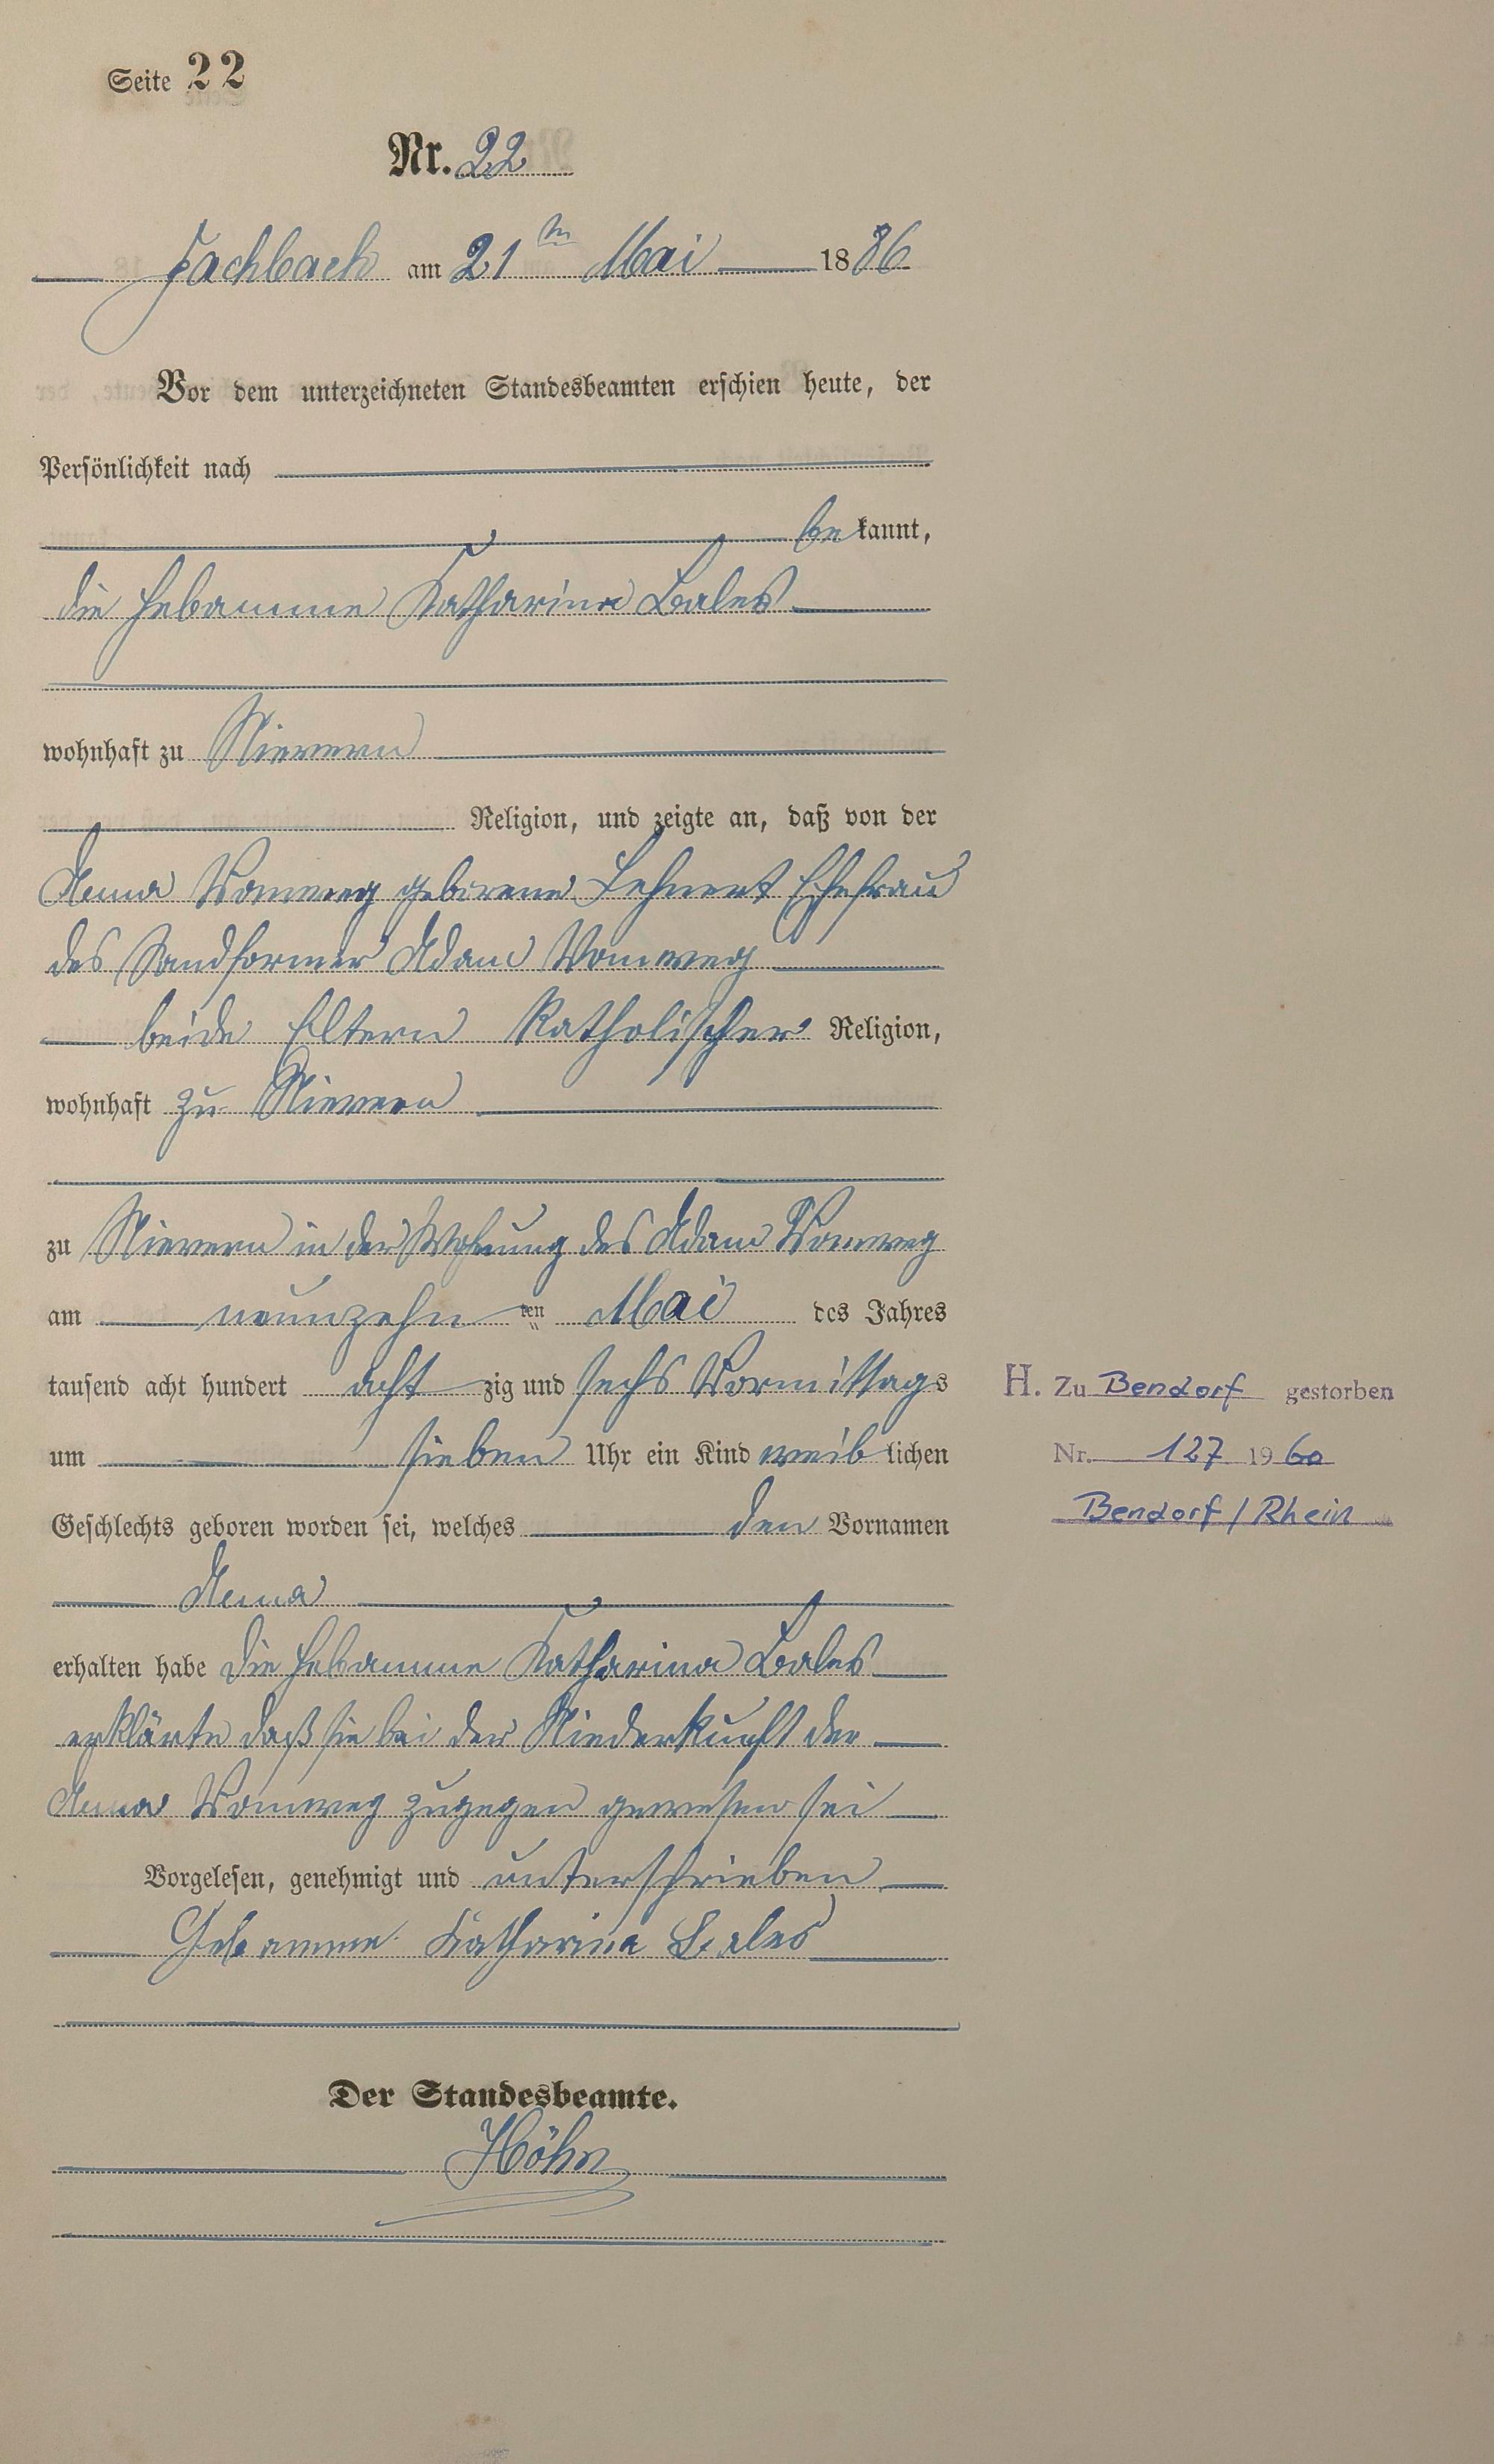 Seite 22
Nr. 22
Fachbach am 21ten Mai 1886
Vor dem unterzeichneten Standesbeamten erschien heute, der
Persönlichkeit nach
be kannt,
die Hebamme Katharina Bales
wohnhaft zu Nievern
Religion, und zeigte an, daß von der
Anna Vomweg geborene Lehnert Ehefrau
des Sandformer Adam Vomweg
beide Eltern Katholischer Religion,
wohnhaft zu Nievern
zu Nievern in der Wohnung des Adam Vomweg
am neunzehn ten Mai des Jahres
tausend acht hundert acht zig und sechs Vormittags
um sieben Uhr ein Kind weib lichen
Geschlechts geboren worden sei, welches den Vornamen
Anna
erhalten habe die Hebamme Katharina Bales
erklärte daß sie bei der Niederkunft der
Anna Vomweg zugegen gewesen sei
Vorgelesen, genehmigt und unterschrieben
Hebamme Katharina Bales
Der Standesbeamte.
Höhn
H. Zu Bendorf gestorben
Nr. 127 1960
Bendorf / Rhein